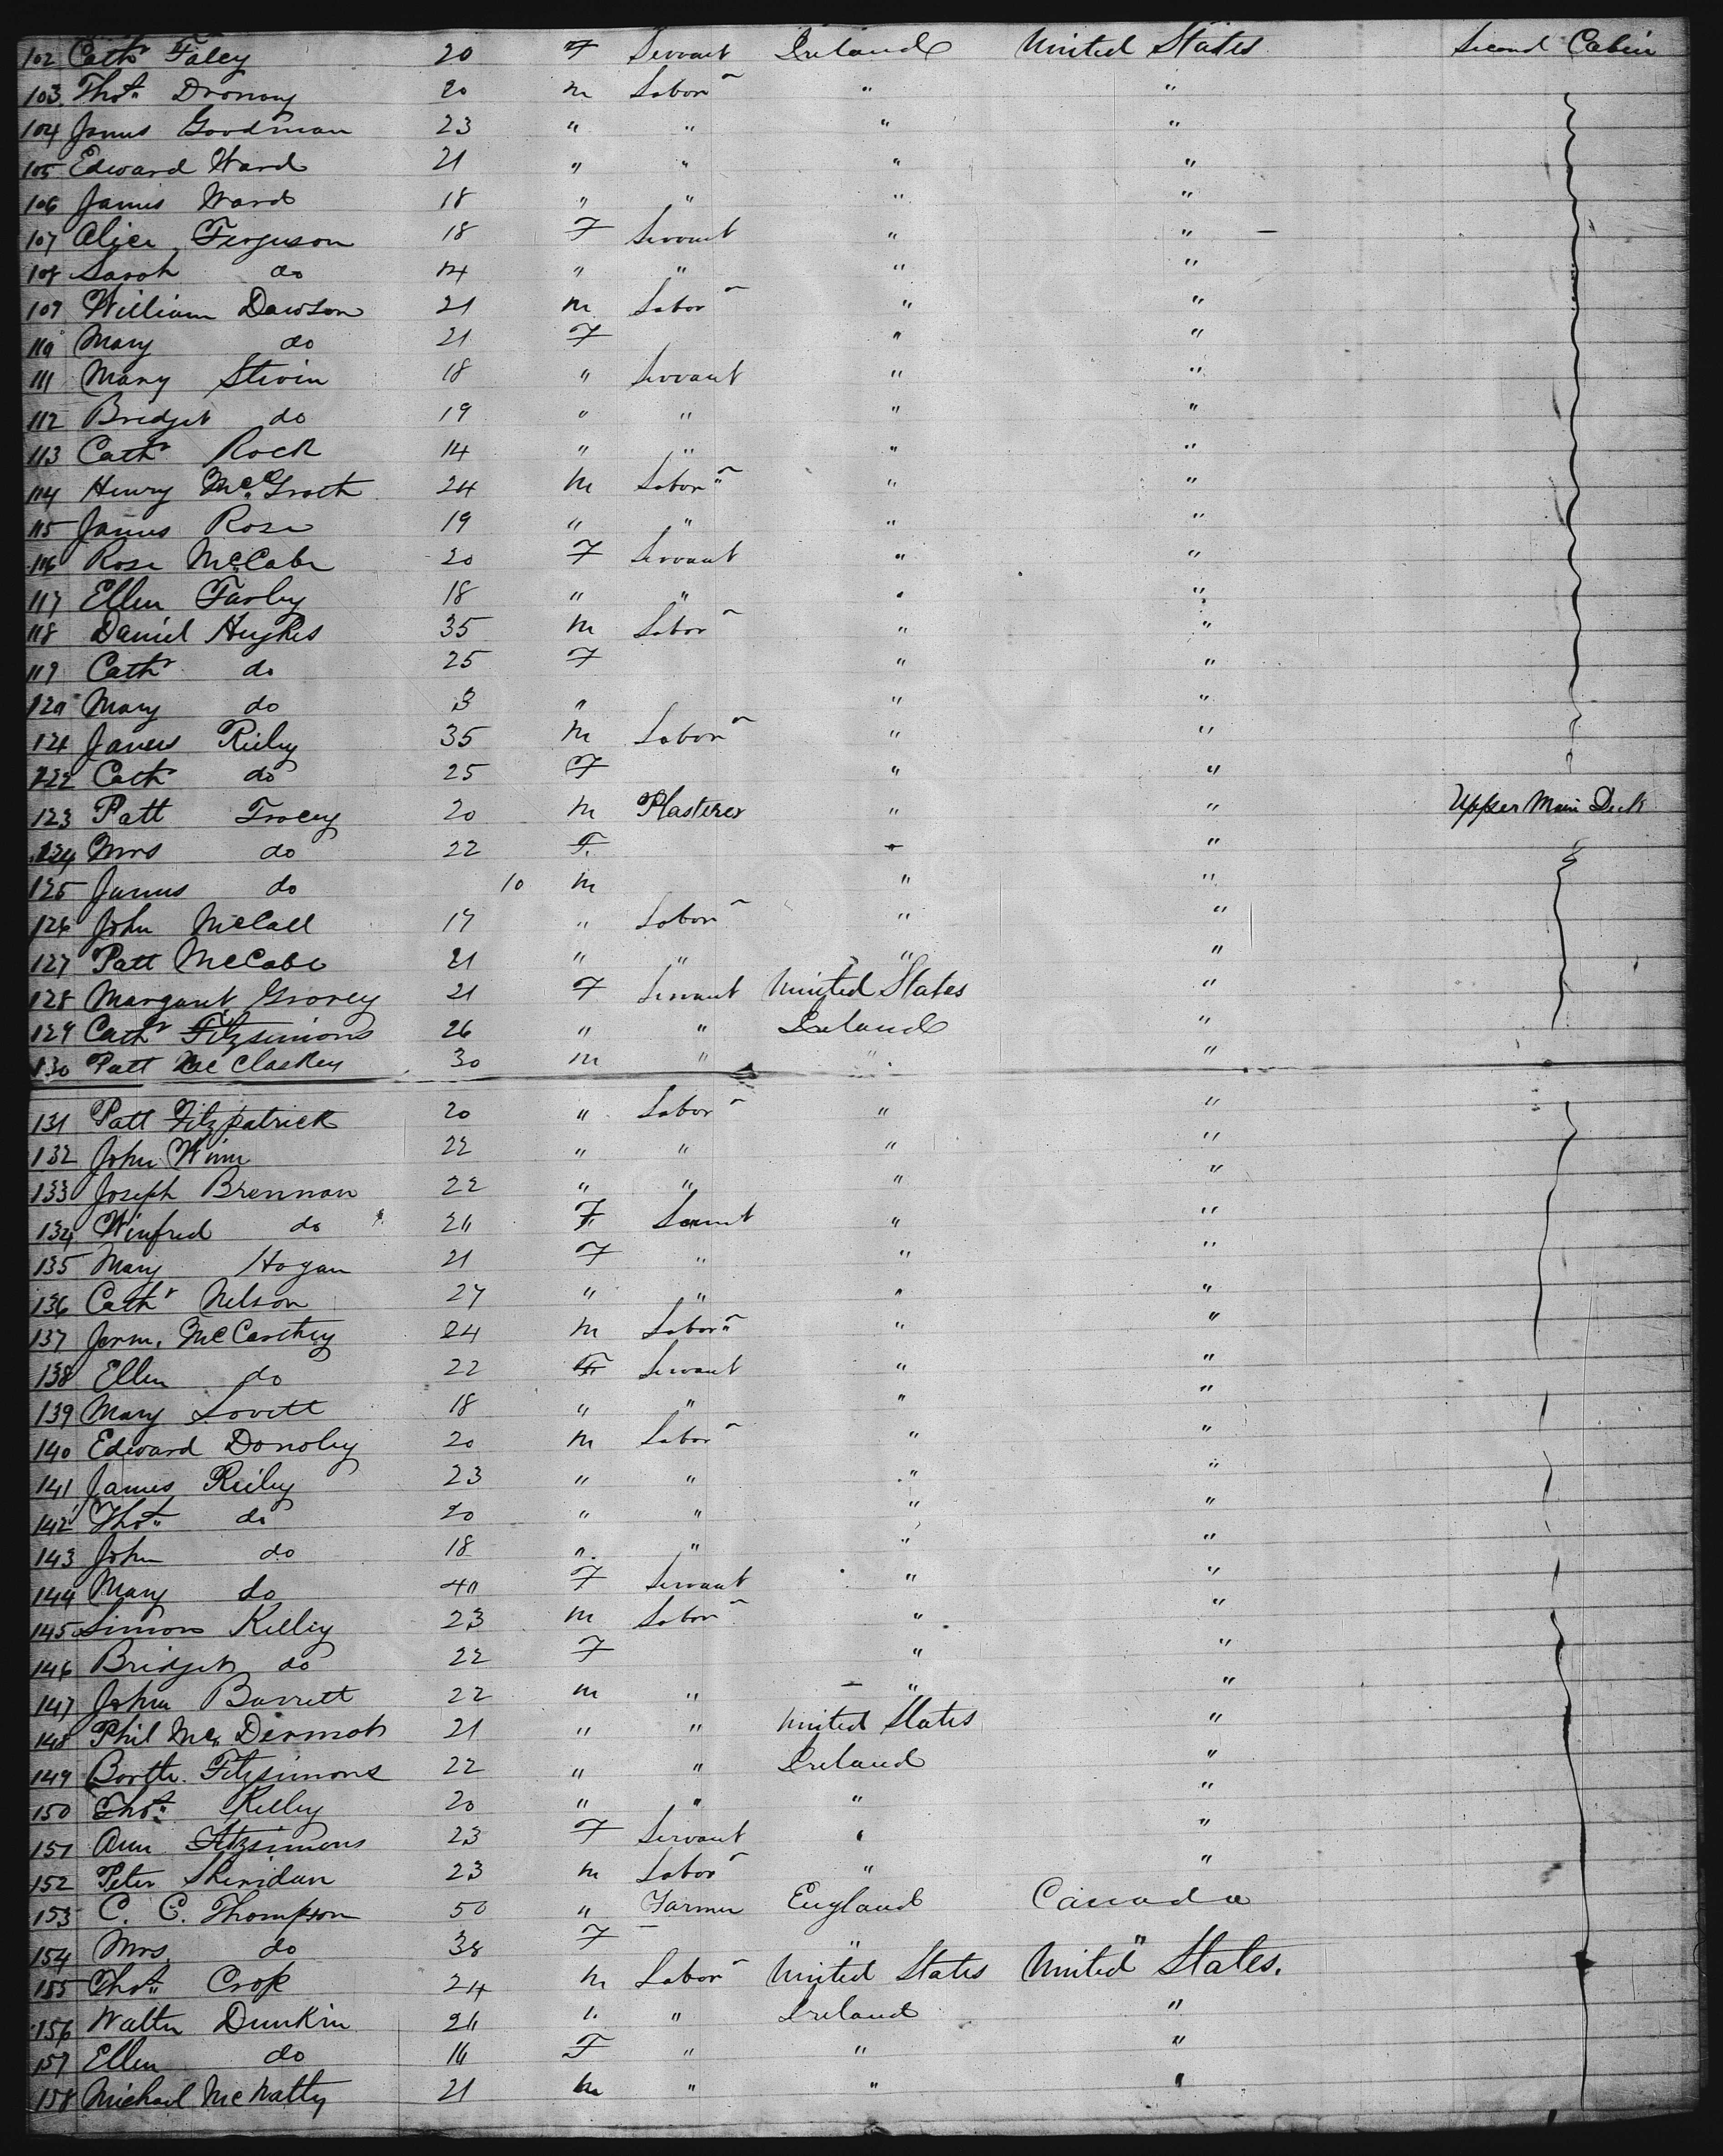 102 Cathr Faley 20 F Servant Ireland United States Second Cabin
103 Thos. Dronony 20 m Labor " "
104 James Goodman 23 " " " "
105 Edward Ward 21 " " " "
106 James Ward 18 " " " "
107 Alice Ferguson 18 F Servant " "
108 Sarah do 14 " " " "
109 William Dawson 21 m Labor " "
110 Mary do 21 F " "
111 Mary Stivin 18 " Servant " "
112 Bridget do 19 " " " "
113 Cathr Rock 14 " " " "
114 Henry McGrath 24 m Labor " "
115 James Rose 19 " " " "
116 Rose McCabe 20 F Servant " "
117 Ellen Farley 18 " " " "
118 Daniel Hughes 35 m Labor " "
119 Cathr do 25 F " "
120 Mary do 3 " " "
121 James Reiley 35 m Labor " "
122 Cathr do 25 F " "
123 Patt Tracey 20 m Plasterer " " Upper Main Deck
124 Mrs do 22 F. " "
125 James do 10 m " "
126 John McCall 19 " Labor " "
127 Patt McCabe 21 " " " "
128 Margaret Grovey 21 F Servant United States "
129 Cathr Fitzsimons 26 " " Ireland "
130 Patt McClaskey 30 m " " "
131 Patt Fitzpatrick 20 " Labor " "
132 John Winn 22 " " " "
133 Joseph Brennan 22 " " " "
134 Winfred do 20 F. Servant " "
135 Mary Hogan 21 F " " "
136 Cathr Nelson 27 " " " "
137 Jerm. McCarthey 24 m Labor " "
138 Ellen do 22 F Servant " "
139 Mary Lovett 18 " " " "
140 Edward Donoley 20 m Labor " "
141 James Reiley 23 " " " "
142 Thos. do 20 " " " "
143 John do 18 " " " "
144 Mary do 40 F Servant " "
145 Simon Kelley 23 m Labor " "
146 Bridget do 22 F " "
147 John Barrett 22 m " " "
148 Phil McDermot 21 " " United States "
149 Barth. Fitzsimons 22 " " Ireland "
150 Thos. Kelley 20 " " " "
151 Ann Fitzsimons 23 F Servant " "
152 Peter Sheridan 23 m Labor " "
153 C. C. Thompson 50 " Farmer England Canada
154 Mrs do 38 F " "
155 Thos. Crope 24 m Labor United States United States.
156 Walter Dunkin 20 " " Ireland "
157 Ellen do 16 F " " "
158 Michael McNatty 21 m " " "